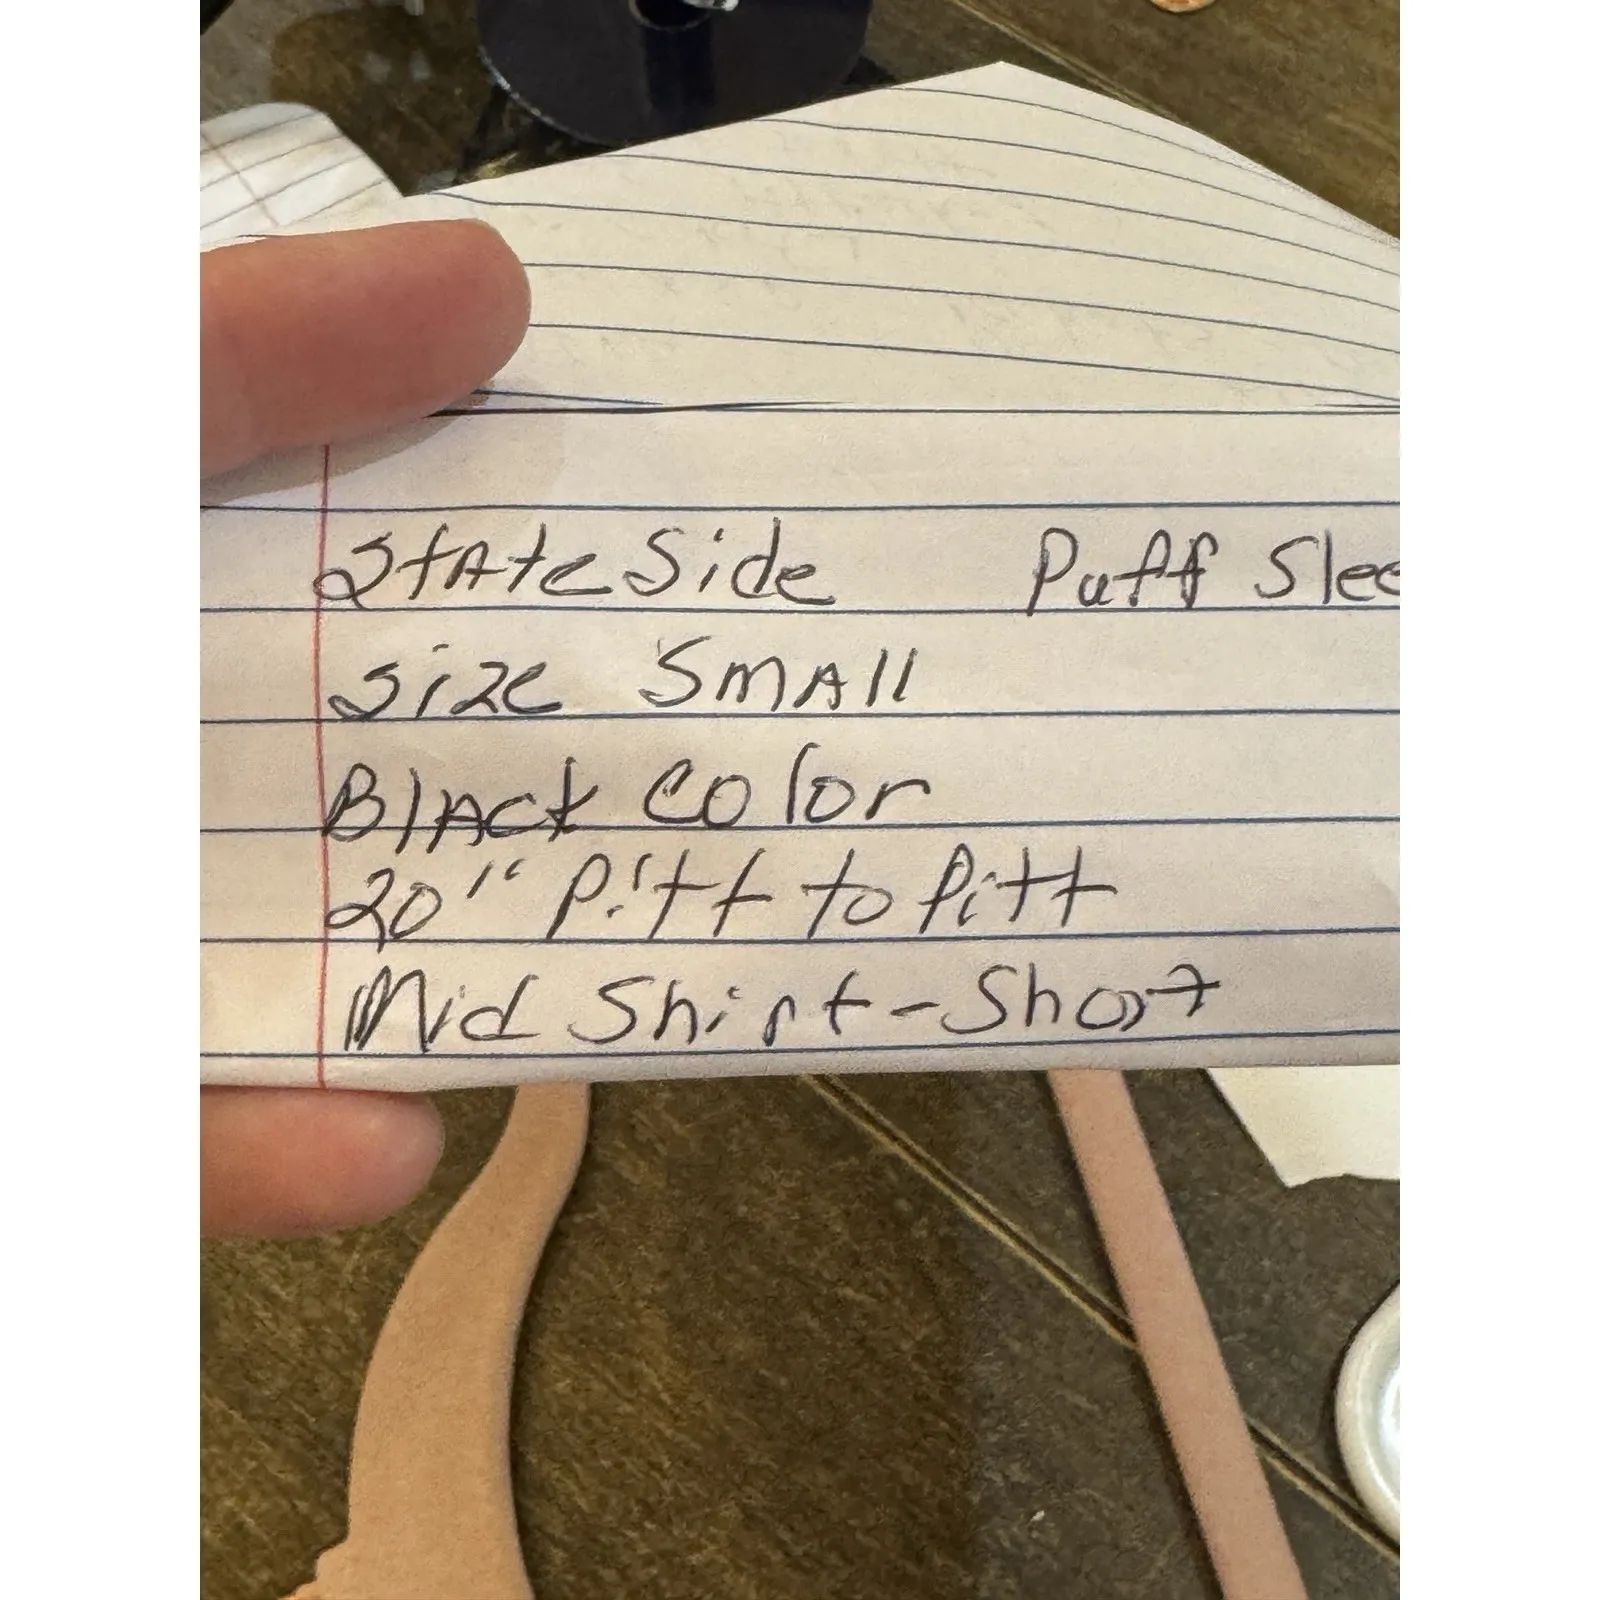 StAte Side Puff Slee
Size SmAll
BlAck Color
20" Pitt to Pitt
Mid Shirt - Short